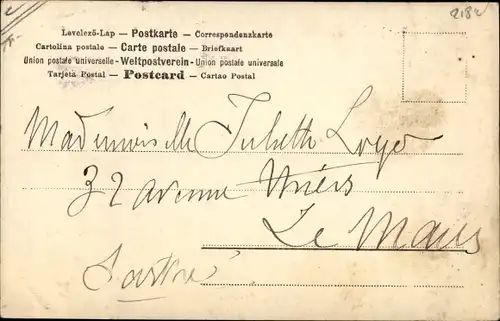 Levelező-Lap — Postkarte — Correspondenzkarte
Cartolina postale — Carte postale — Briefkaart
Union postale universelle - Weltpostverein - Union postale universale
Tarjeta Postal — Postcard — Cartao Postal
Mademoiselle Juliette
32 avenue Thiers
Le Mans
Sarthe